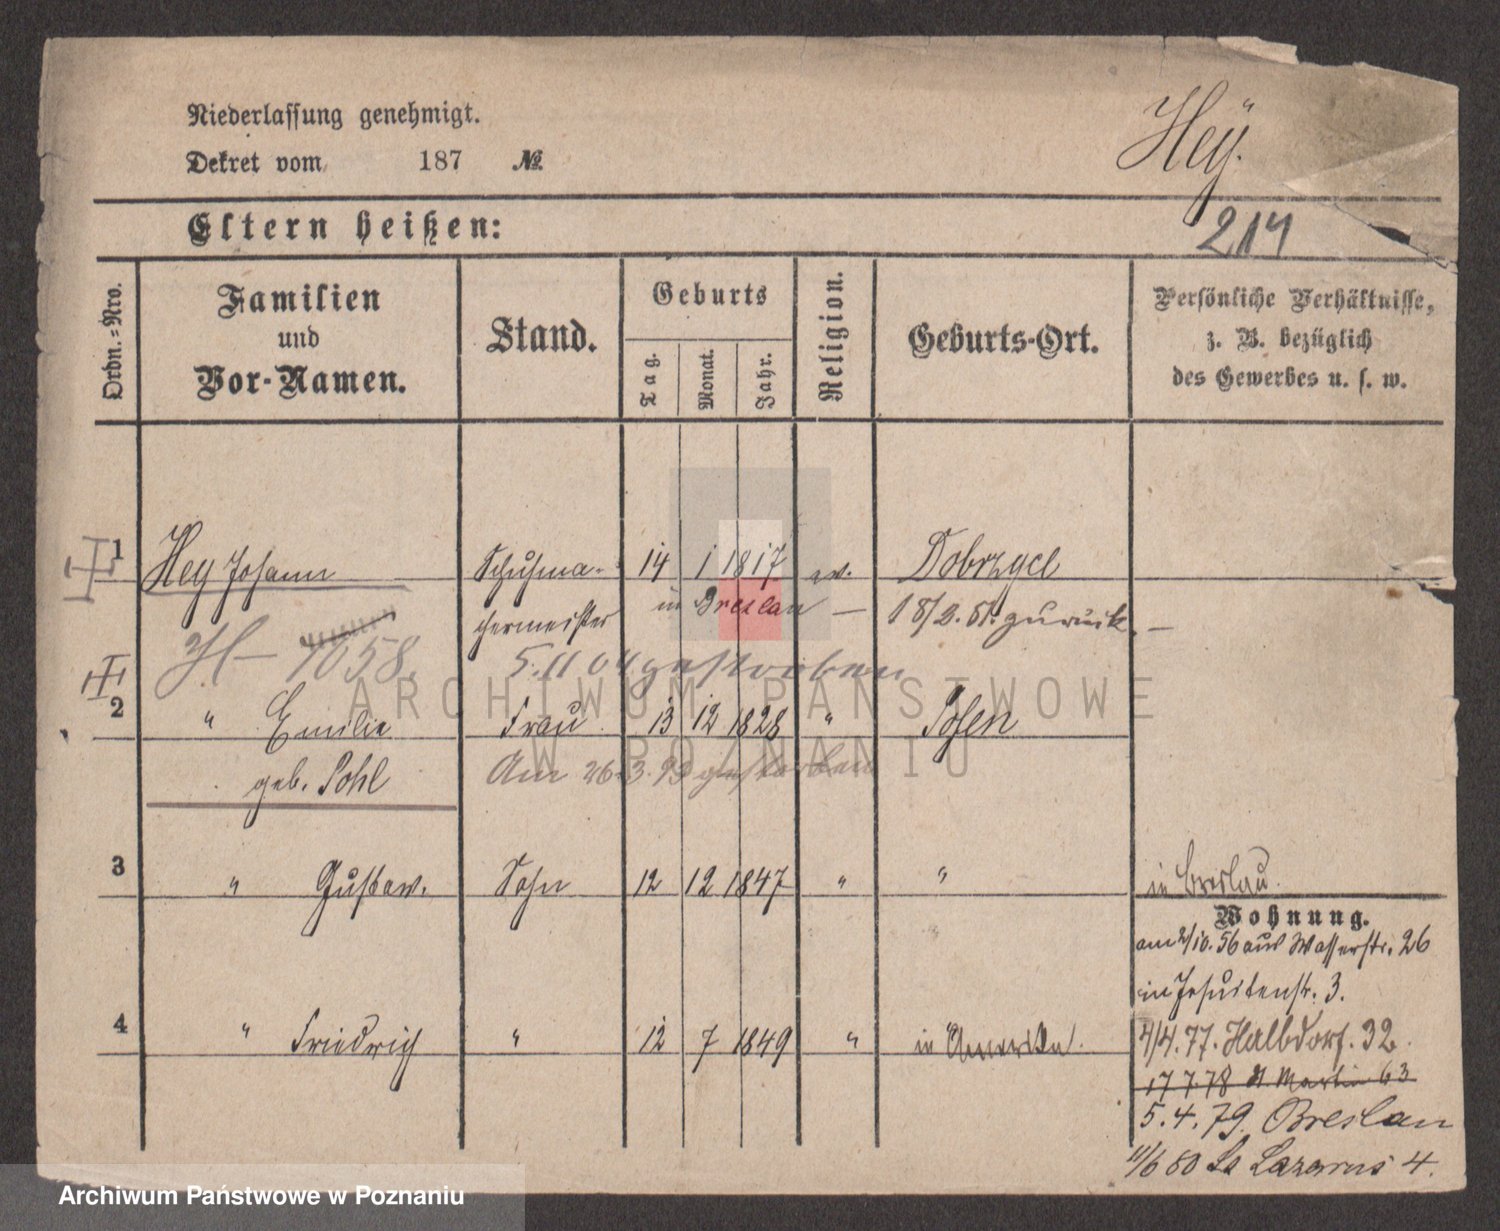 Niederlassung genehmigt.
Dekret vom 187 №
Heÿ.
214
Eltern heißen:
Ordn.-Nro.
Familien
und
Vor-Namen.
Stand.
Geburts
Tag.
Monat.
Jahr.
Religion.
Geburts-Ort.
Persönliche Verhältnisse,
z. B. bezüglich
des Gewerbes u. s. w.
1 Hey Johann Schuhma- 14 1 1817 ev. Dobrzyca
chermeister in Breslau — 18/2. 81. zurück. —
H— 1058. 5.11 04 gestorben
2 " Emilie Frau 13 12 1828 " Posen
geb. Pohl Am 26.3.93 gestorben
3 " Gustav. Sohn 12 12 1847 " "
in Breslau.
Wohnung.
am 2/10.56 aus Wasserstr. 26
in Jesuitenstr. 3.
4 " Friedrich " 12 7 1849 " in Amerika.
4/4.77. Halbdorf. 32.
17 7.78 St. Martin 63
5.4.79. Breslau
11/6 80 St Lazarus 4.
ARCHIWUM PAŃSTWOWE
W POZNANIU
Archiwum Państwowe w Poznaniu